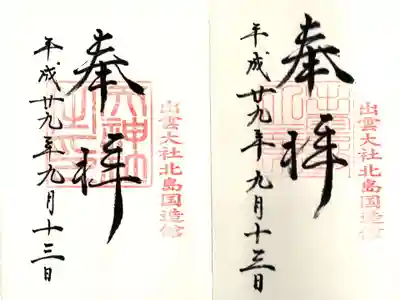 奉拝
出雲大社北島国造館
平成廿九年九月十三日
奉拝
出雲大社北島国造館
平成廿九年九月十三日